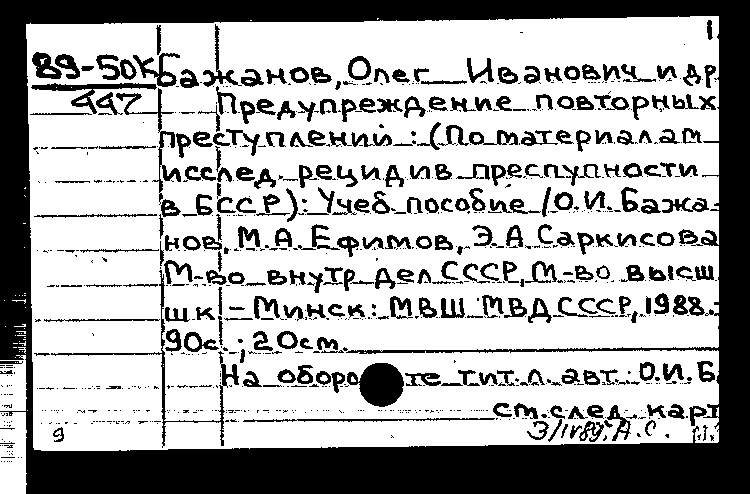 1.
89-50К Бажанов, Олег Иванович и др
447 Предупреждение повторных
преступлений : (По материалам
исслед. рецидив преступности
в БССР): Учеб. пособие /О.И. Бажа-
нов, М.А. Ефимов, Э.А. Саркисова
М-во внутр дел СССР, М-во высш
шк. - Минск: МВШ МВД СССР, 1988.-
90с. ; 20см.
На оборо те тит. л. авт: О.И. Б
см. след карт
9 Э/IV89. А.С.